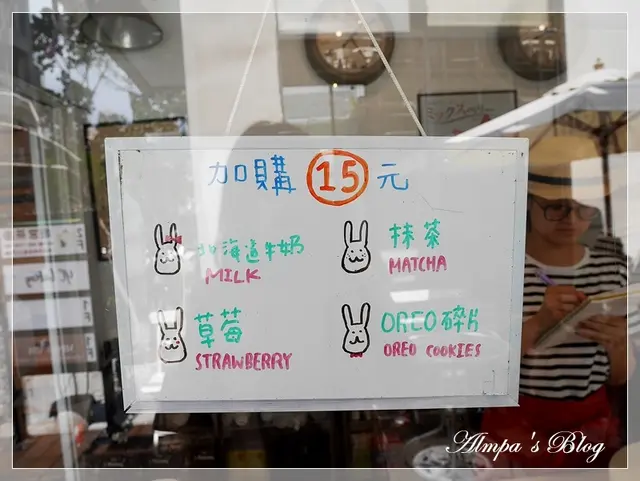 加購 15 元
北海道牛奶
MILK
抹茶
MATCHA
草莓
STRAWBERRY
OREO碎片
OREO COOKIES
ミックス
Almpa's Blog